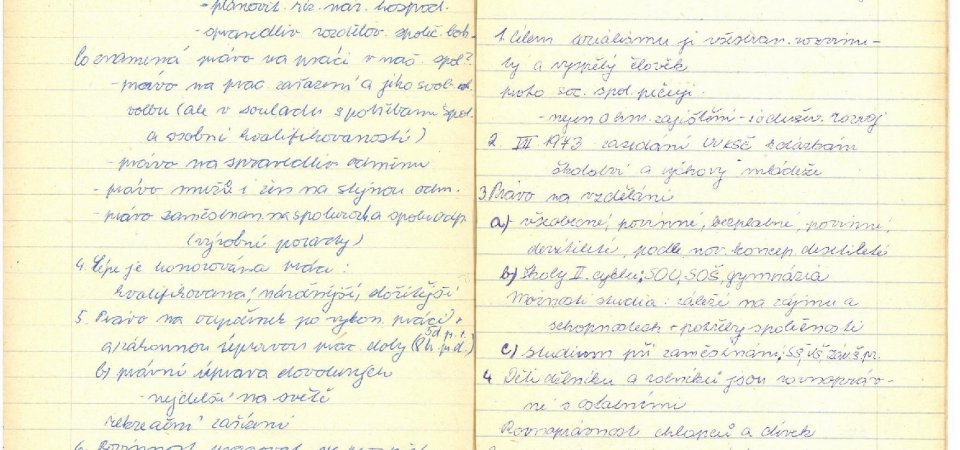 - plánovit. říz. nár. hospod.
- spravedliv rozdělov. společ. boh.
Co znamená právo na práci v naš. spol?
- právo na prac. zařazení a jeho svob.
volbu (ale v souladu s potřebami spol.
a osobní kvalifikovaností)
- právo na spravedliv odměnu
- právo mužů i žen na stejnou odm.
- právo zaměstnan. na spolurozh a spoluodp
(výrobní porady)
4. Lépe je honorována práce:
kvalifikovaná, náročnější, důležitější
5. Právo na odpočinek po vykon. práci +
a) zákonnou úpravou prac. doby (8h. p.d.)
5d. p. t.
b) právní úprava dovolených
- nejdelší na světě
rekreační zařízení
6. Povinnost pracovat
1. Cílem socialismu je všestran. rozvinu-
tý a vyspělý člověk
proto soc. spol. pečuje
- nejen o hm. zajištění - i o dušev. rozvoj
2. VII 1973 zasedání ÚV KSČ k otázkám
školství a výchovy mládeže
3. Právo na vzdělání
a) všeobecné, povinné, bezplatné, povinné,
devítileté, podle nov. koncep. desetileté
b) školy II. cyklu; SOU, SOŠ, gymnázia
Možnosti studia: záleží na zájmu a
schopnostech + potřeby společnosti
c) studium při zaměstnání; SŠ, VŠ,
4 Děti dělníků a rolníků jsou rovnopráv-
né s ostatními
Rovnoprávnost chlapců a dívek